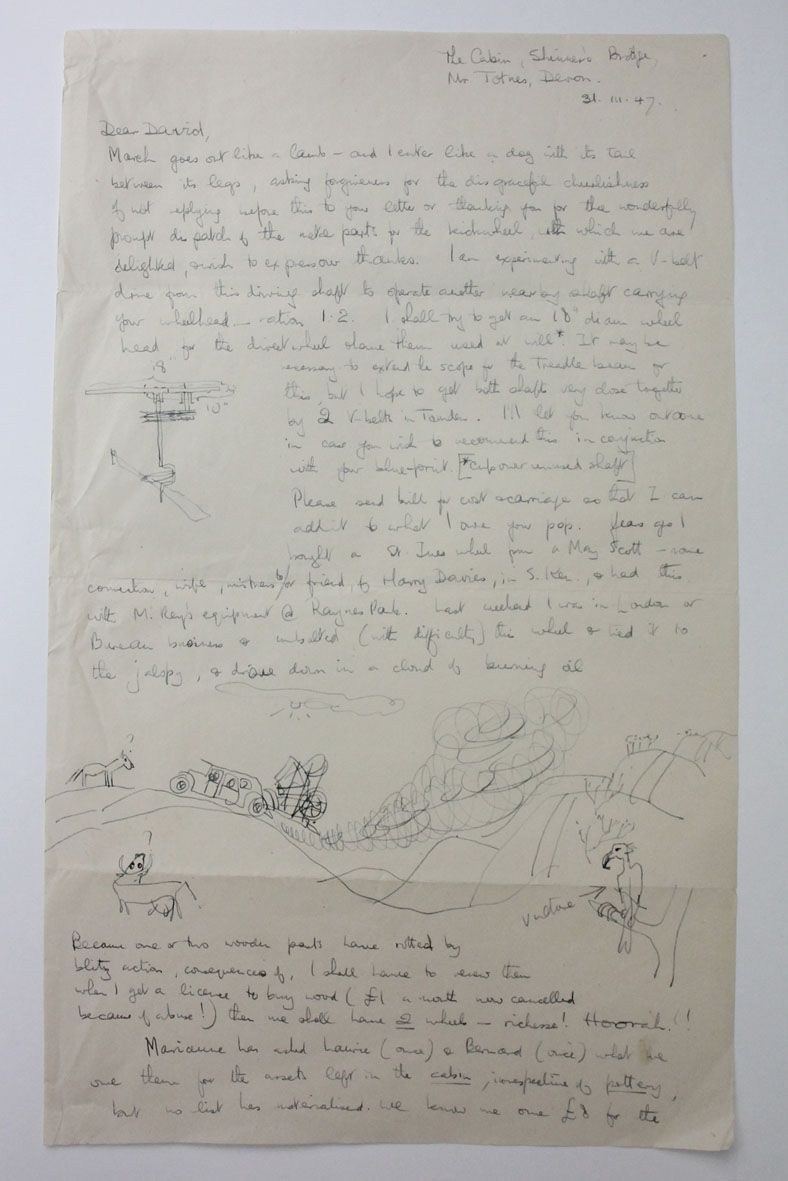 The Cabin, Shinner's Bridge,
Nr. Totnes, Devon.
31. III. 47.
Dear David,
March goes out like a lamb – and I enter like a dog with its tail
between its legs, asking forgiveness for the disgraceful churlishness
of not replying before this to your letter or thanking you for the wonderfully
prompt dispatch of the metal parts for the kickwheel, with which we are
delighted, & wish to express our thanks. I am experimenting with a V-belt
drive from this driving shaft to operate another nearby shaft carrying
your wheelhead – ration 1:2. I shall try to get an 18" diam wheel
head for the direct wheel & have them used at will*. It may be
necessary to extend the scope for the Treadle beam for
this, but I hope to get both shafts very close together
by 2 V-belts in Tandem. I'll let you know outcome
in case you wish to recommend this in conjunction
with your blue-print. [*cup over unused shaft]
18"
10"
Please send bill for cost & carriage so that I can
add it to what I owe your pop. Years ago I
bought a St. Ives wheel from a May Scott – some
connection, wife, mistress &/or friend, of Harry Davies, in S. Ken., & had this
with M. Rey's equipment @ Raynes Park. Last weekend I was in London on
Bureau business & unbolted (with difficulty) this wheel & tied it to
the jalopy, & drove down in a cloud of burning oil
?
?
vulture
Because one or two wooden parts have rotted by
blitz action, consequences of, I shall have to renew them
when I get a licence to buy wood (£1 a month now cancelled
because of abuse!) then we shall have 2 wheels – richesse! Hoorah!!
Marianne has asked Laurie (once) & Bernard (once) what we
owe them for the assets left in the cabin, irrespective of pottery,
but no list has materialised. We know we owe £8 for the